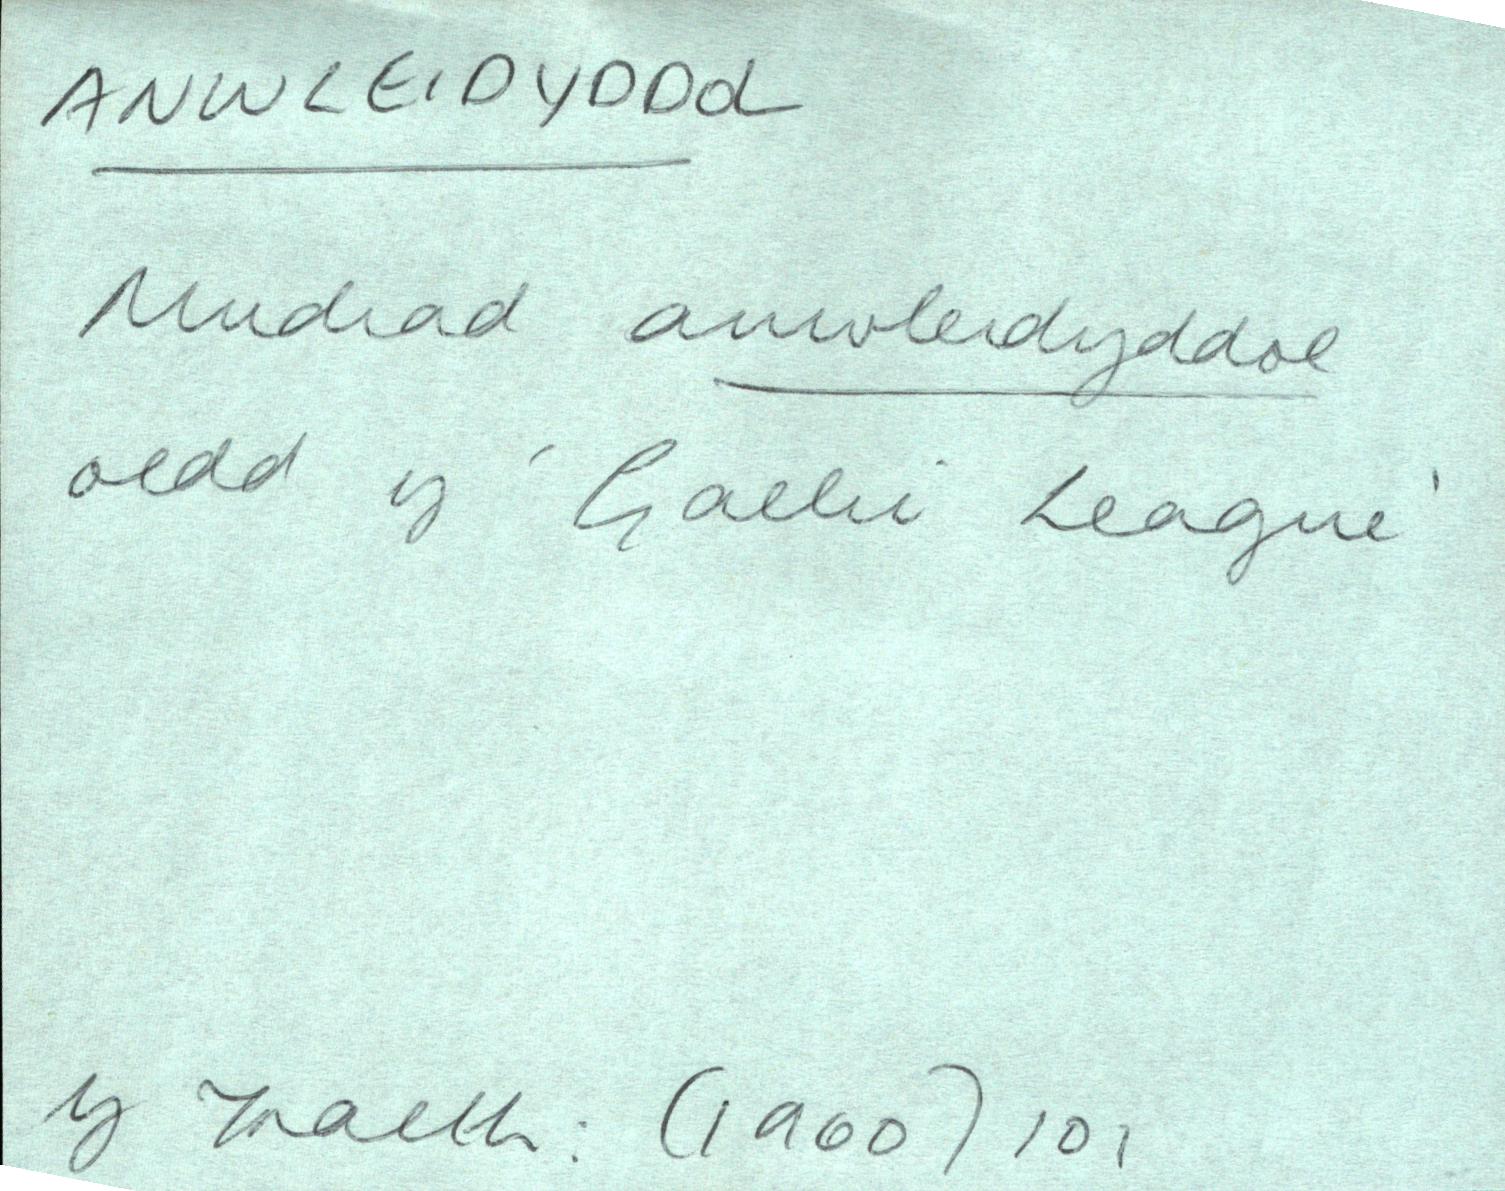 ANWLEIDYDDOL
Mudiad anwleidyddol
oedd y 'Gaelic League'
Y Traeth: (1960) 101